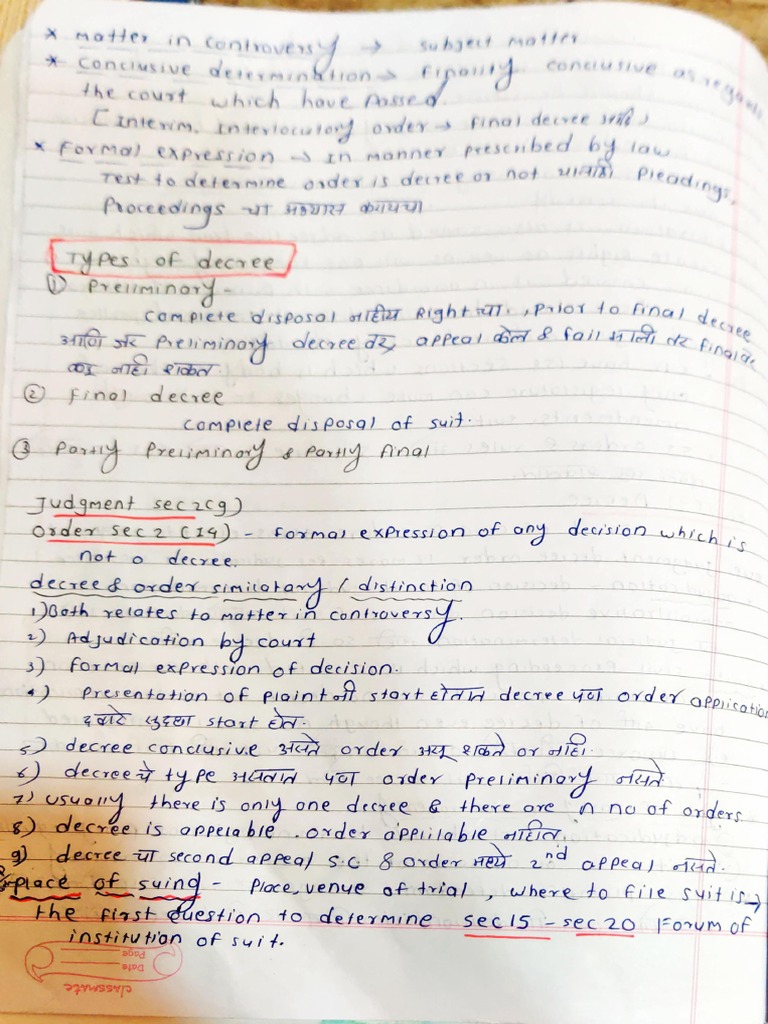 * Matter in controversy → subject matter
* Conclusive determination → Finality conclusive as regards
the court which have Passed.
[Interim, Interlocutory order → final decree आहे)
* Formal expression → In manner prescribed by law
Test to determine order is decree or not यासाठी Pleadings,
Proceedings चा अभ्यास करायचा
Types of decree
① Preliminary -
complete disposal नाहीय Right चा. , prior to final decree
आणि जर Preliminary decree वर appeal केल & fail झाली तर final
करू नाही शकत.
② Final decree
complete disposal of suit.
③ Partly Preliminary & Partly final
Judgment sec 2(9)
Order sec 2 (14) - Formal expression of any decision which is
not a decree.
decree & order similatary / distinction
1) Both relates to matter in controversy.
2) Adjudication by court
3) formal expression of decision.
4) Presentation of plaint नी start होतात decree पण order application
द्वारे सुद्धा start होत.
5) decree conclusive असते order असू शकते or नाही.
6) decree चे type असतात पण order preliminary नसते
7) usually there is only one decree & there are n no of orders
8) decree is appelable . order applilable नाहीत.
9) decree चा second appeal s.c & order मध्ये 2nd appeal नसते.
Place of suing - Place, venue of trial , where to file suit is →
the first question to determine sec 15 - sec 20 Forum of
institution of suit.
classmate
Date
Page